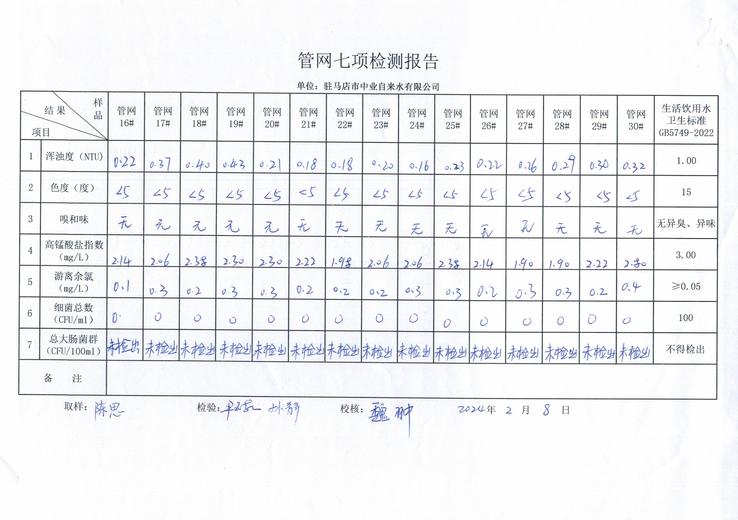 管网七项检测报告
单位：驻马店市中业自来水有限公司
结果 样品 项目 管网16# 管网17# 管网18# 管网19# 管网20# 管网21# 管网22# 管网23# 管网24# 管网25# 管网26# 管网27# 管网28# 管网29# 管网30# 生活饮用水卫生标准GB5749-2022
1 浑浊度（NTU） 0.22 0.37 0.40 0.43 0.21 0.18 0.18 0.20 0.16 0.23 0.22 0.26 0.29 0.30 0.32 1.00
2 色度（度） <5 <5 <5 <5 <5 <5 <5 <5 <5 <5 <5 <5 <5 <5 <5 15
3 嗅和味 无 无 无 无 无 无 无 无 无 无 无 无 无 无 无 无异臭、异味
4 高锰酸盐指数（mg/L） 2.14 2.06 2.38 2.30 2.30 2.22 1.98 2.06 2.06 2.38 2.14 1.90 1.90 2.22 2.30 3.00
5 游离余氯（mg/L） 0.1 0.3 0.2 0.3 0.3 0.2 0.2 0.2 0.3 0.3 0.2 0.3 0.3 0.2 0.4 ≥0.05
6 细菌总数（CFU/ml） 0 0 0 0 0 0 0 0 0 0 0 0 0 0 0 100
7 总大肠菌群（CFU/100ml） 未检出 未检出 未检出 未检出 未检出 未检出 未检出 未检出 未检出 未检出 未检出 未检出 未检出 未检出 未检出 不得检出
备 注
取样：陈思 检验： 孙静 校核：魏翀 2024年 2 月 8 日